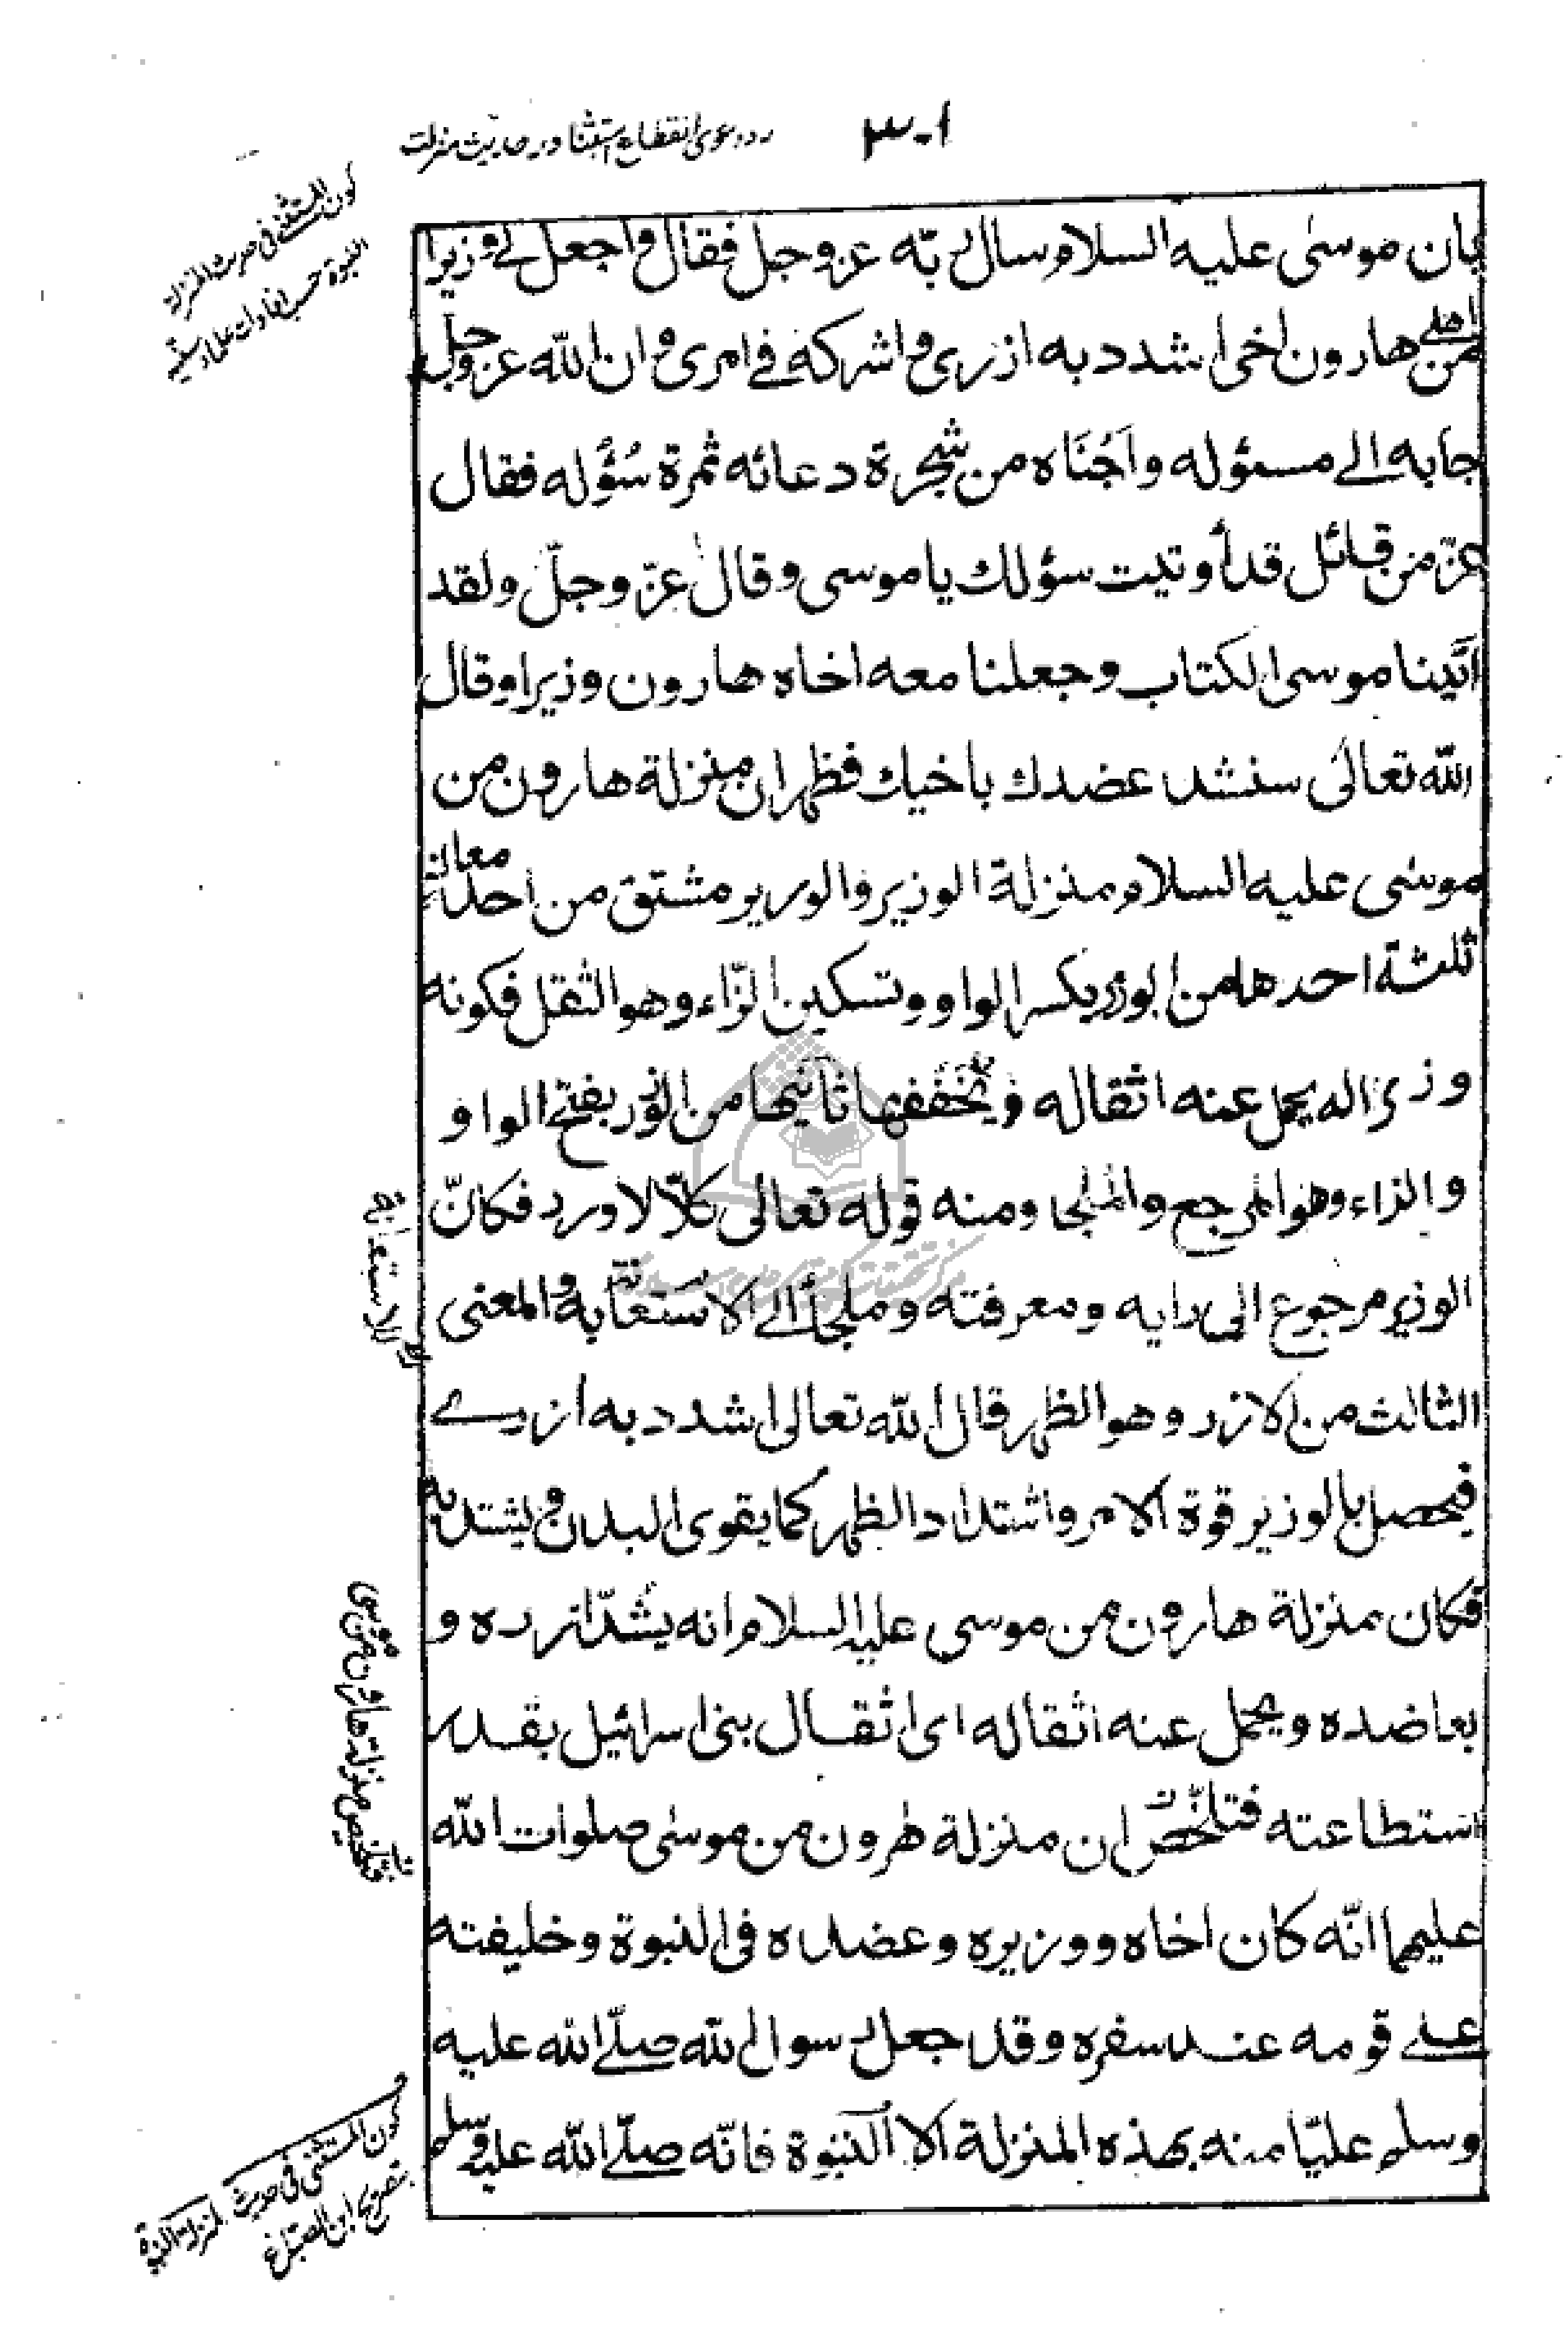 ۳۰۱
رد دعوی انقطاع استثنا در حدیث منزلت
کون المستثنی فی حدیث المنزلة
النبوة حسب افادات علماء سنیة
بان موسى عليه السلام سال ربّه عز وجل فقال واجعل لي وزيرا
من اهلي هارون اخي اشدد به ازري واشركه في امري وان الله عز وجل
جابه الى مسئوله واجناه من شجرة دعائه ثمرة سُؤله فقال
عزّ من قائل قد أوتيت سؤلك يا موسى وقال عزّ وجلّ ولقد
اتينا موسى الكتاب وجعلنا معه اخاه هارون وزيرا وقال
الله تعالى سنشد عضدك باخيك فظهر ان منزلة هارون من
موسى عليه السلام منزلة الوزير والوزير مشتق من احد معاني
ثلثة احدها من الوزر بكسر الواو وتسكين الزّاء وهو الثقل فكونه
وزيرا له يحمل عنه اثقاله ويخففها ثانيها من الوزر بفتح الواو و
والزاء وهو المرجع والملجا ومنه قوله تعالى كلّا لا وزر فكانّ
الوزير مرجوع الى رايه ومعرفته وملجأ الى الاستعانة به والمعنى
الثالث من الازر وهو الظهر قال الله تعالى اشدد به ازري
فيحصل بالوزير قوة الامر واشتداد الظهر كما يقوى البدن ويشتد به
فكان منزلة هارون من موسى عليه السلام انه يشدّ ازره و
يعاضده ويحمل عنه اثقاله اى اثقال بنى اسرائيل بقدر
استطاعته فتلخّص ان منزلة هرون من موسى صلوات الله
عليهما انّه كان اخاه ووزيره وعضده فى النبوة وخليفته
على قومه عند سفره وقد جعل رسول الله صلّى الله عليه
وسلم عليّا منه بهذه المنزلة الا النبوة فانّه صلّى الله عليه وسلم
للاستعانة
فتلخيص منزلة هارون من موسى
كون المستثنى فى حديث المنزلة النبوة
بتصريح ابن الصباغ